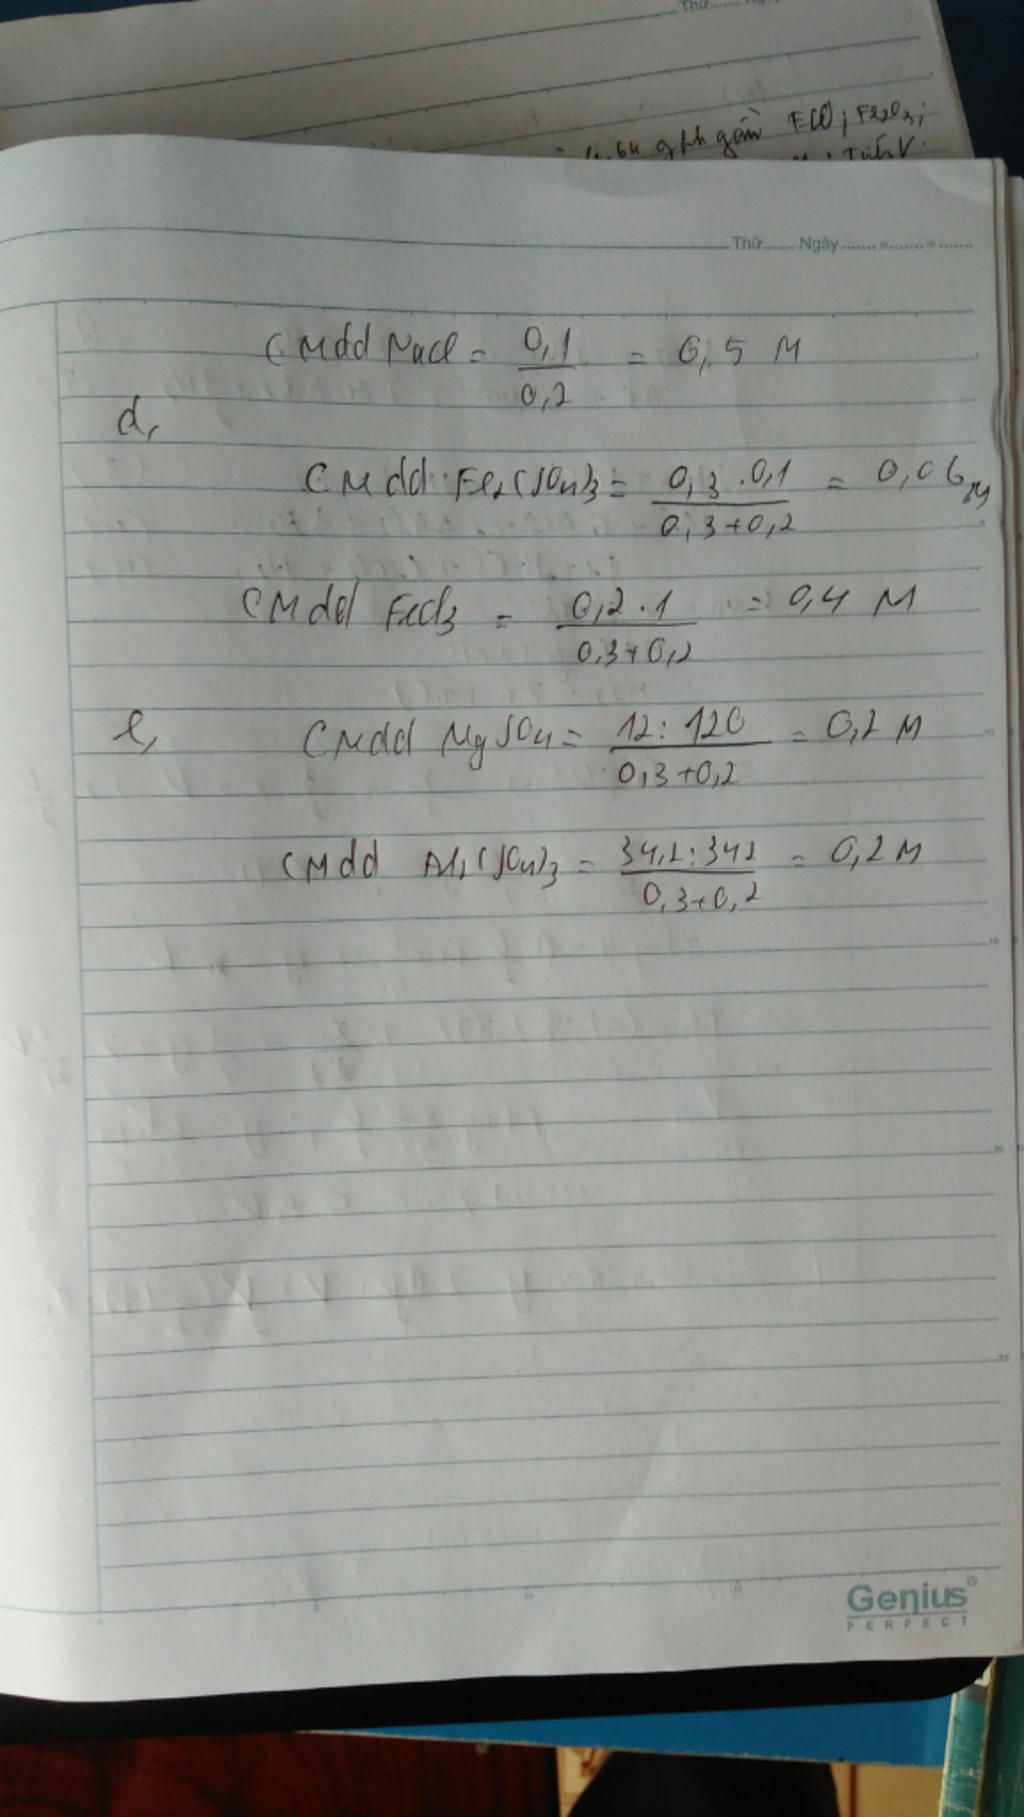 Thứ....... Ngày
4,64 g hh gồm FeO; Fe2O3;
Tính V.
Thứ....... Ngày.......
CMdd NaCl = 0,1 / 0,2 = 0,5 M
d,
CMdd Fe2(SO4)3 = 0,3 . 0,1 / 0,3+0,2 = 0,06 M
CMdd FeCl3 = 0,2 . 1 / 0,3+0,2 = 0,4 M
e, CMdd MgSO4 = 12 : 120 / 0,3+0,2 = 0,2 M
CMdd Al2(SO4)3 = 34,2 : 342 / 0,3+0,2 = 0,2 M
Genius
PERFECT